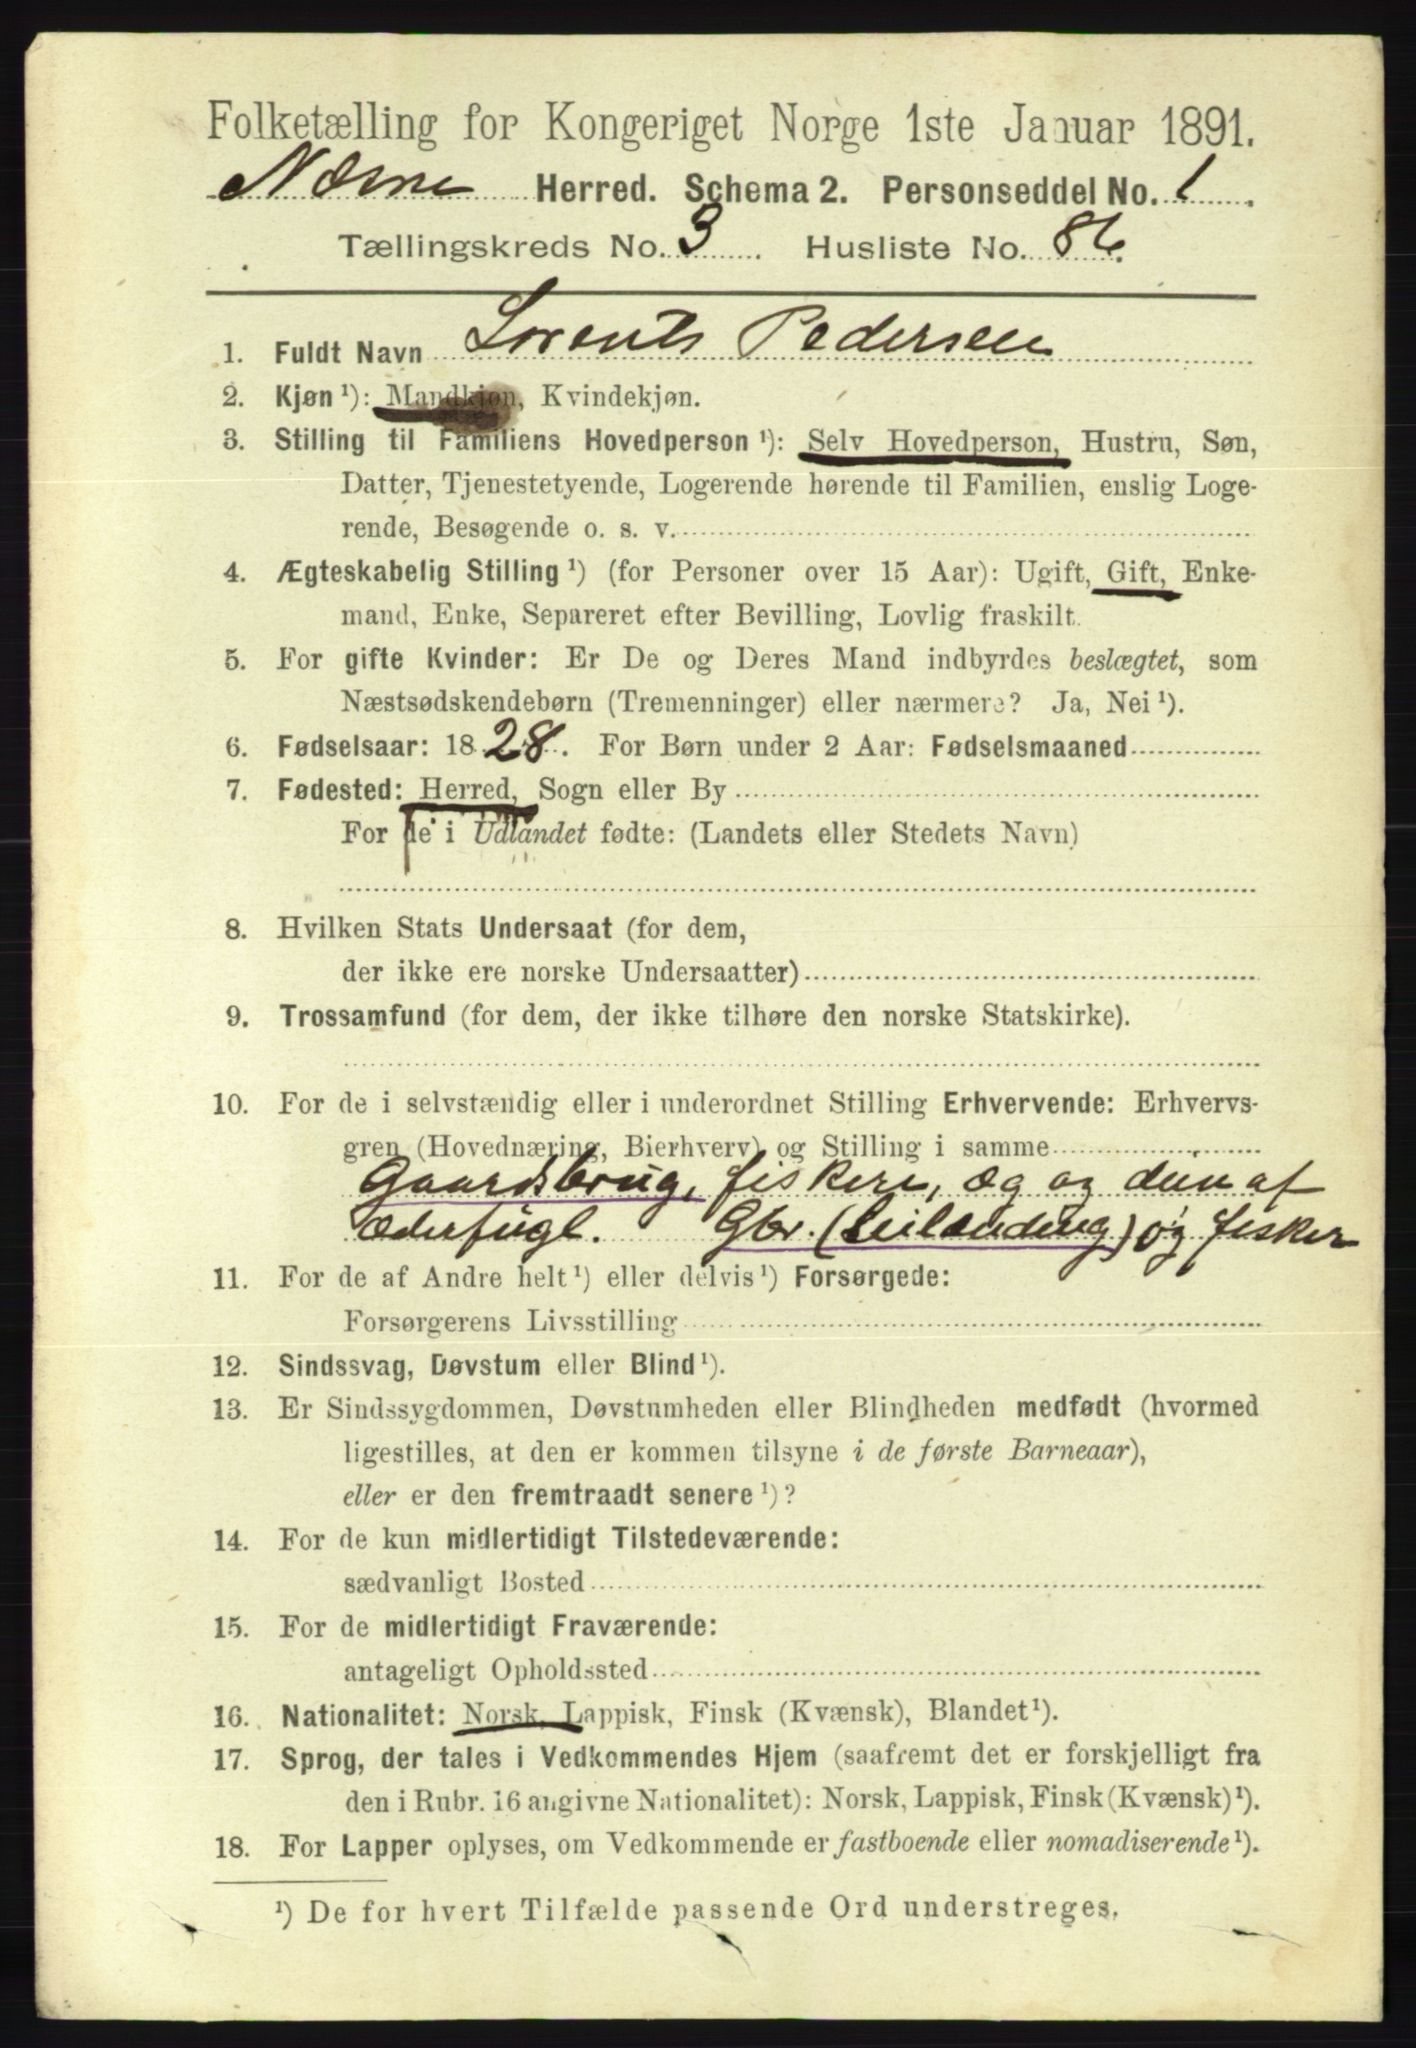 Folketælling for Kongeriget Norge 1ste Januar 1891.
Næsne Herred. Schema 2. Personseddel No. 1.
Tællingskreds No. 3. Husliste No. 86.
1. Fuldt Navn Lorents Pedersen
2. Kjøn ¹): Mandkjøn, Kvindekjøn.
3. Stilling til Familiens Hovedperson ¹): Selv Hovedperson, Hustru, Søn,
Datter, Tjenestetyende, Logerende hørende til Familien, enslig Loge-
rende, Besøgende o. s. v.
4. Ægteskabelig Stilling ¹) (for Personer over 15 Aar): Ugift, Gift, Enke-
mand, Enke, Separeret efter Bevilling, Lovlig fraskilt.
5. For gifte Kvinder: Er De og Deres Mand indbyrdes beslægtet, som
Næstsødskendebørn (Tremenninger) eller nærmere? Ja, Nei ¹).
6. Fødselsaar: 1828. For Børn under 2 Aar: Fødselsmaaned
7. Fødested: Herred, Sogn eller By
For de i Udlandet fødte: (Landets eller Stedets Navn)
8. Hvilken Stats Undersaat (for dem,
der ikke ere norske Undersaatter)
9. Trossamfund (for dem, der ikke tilhøre den norske Statskirke).
10. For de i selvstændig eller i underordnet Stilling Erhvervende: Erhvervs-
gren (Hovednæring, Bierhverv) og Stilling i samme
Gaardsbrug, fiskeri, æg og dun af
Ederfugl. Gbr. (Leilænding) og fisker
11. For de af Andre helt ¹) eller delvis ¹) Forsørgede:
Forsørgerens Livsstilling
12. Sindssvag, Døvstum eller Blind ¹).
13. Er Sindssygdommen, Døvstumheden eller Blindheden medfødt (hvormed
ligestilles, at den er kommen tilsyne i de første Barneaar),
eller er den fremtraadt senere ¹)?
14. For de kun midlertidigt Tilstedeværende:
sædvanligt Bosted
15. For de midlertidigt Fraværende:
antageligt Opholdssted
16. Nationalitet: Norsk, Lappisk, Finsk (Kvænsk), Blandet ¹).
17. Sprog, der tales i Vedkommendes Hjem (saafremt det er forskjelligt fra
den i Rubr. 16 angivne Nationalitet): Norsk, Lappisk, Finsk (Kvænsk) ¹).
18. For Lapper oplyses, om Vedkommende er fastboende eller nomadiserende ¹).
¹) De for hvert Tilfælde passende Ord understreges.